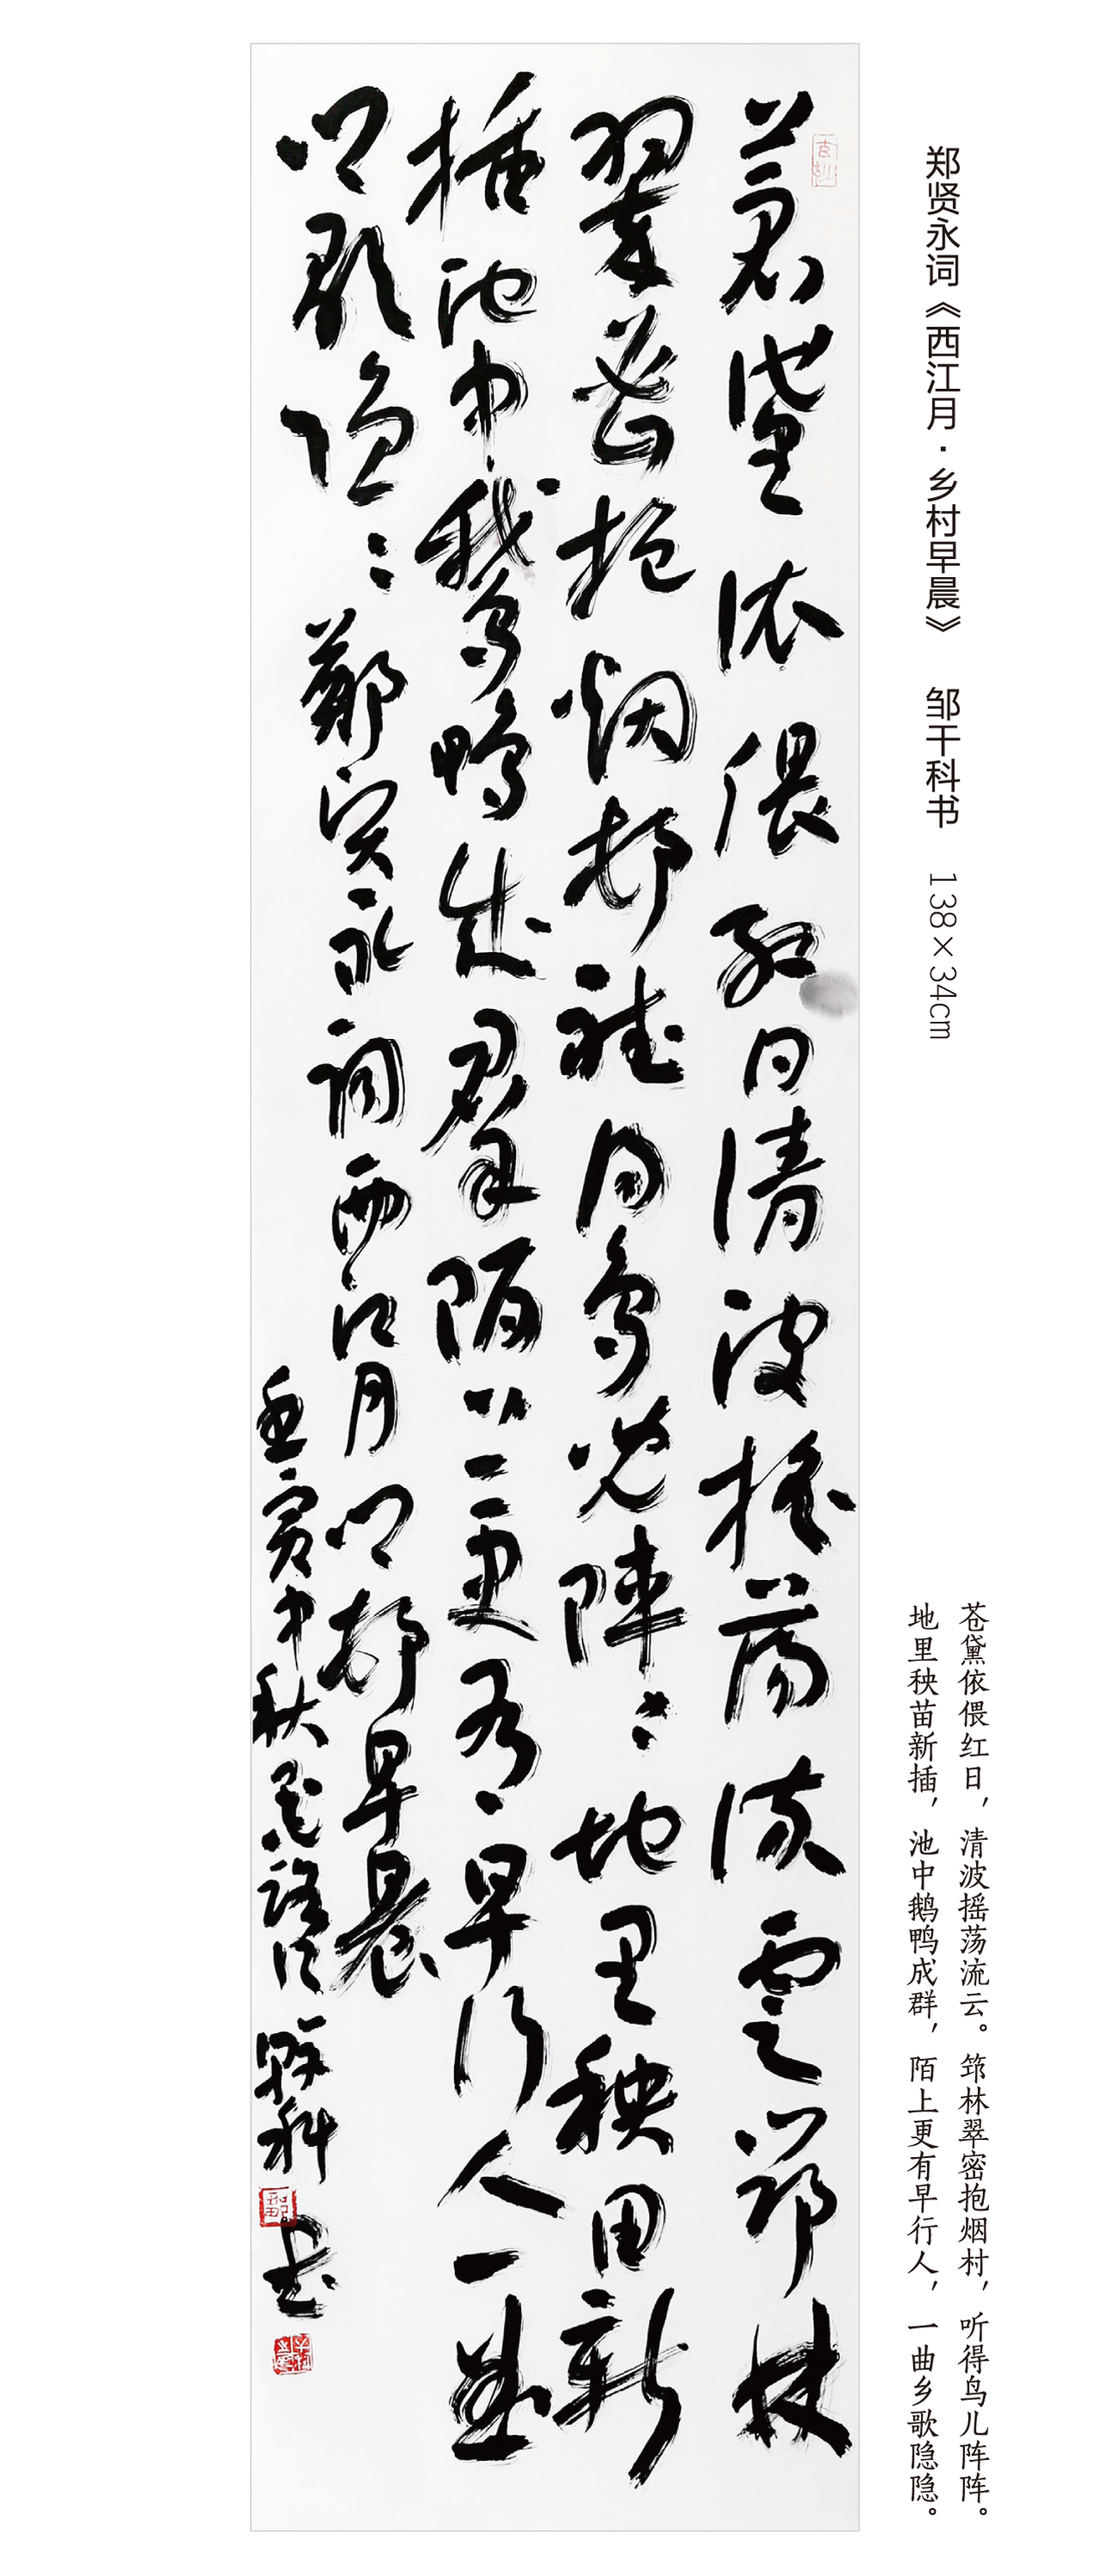 郑贤永词《西江月·乡村早晨》 邹干科书 138×34cm
苍黛依偎红日，清波摇荡流云。筇林翠密抱烟村，听得鸟儿阵阵。
地里秧苗新插，池中鹅鸭成群，陌上更有早行人，一曲乡歌隐隐。
苍黛依偎红日清波摇荡流云筇林
翠密抱烟村听得鸟儿阵阵地里秧苗新
插池中鹅鸭成群陌上更有早行人一曲
乡歌隐隐 郑贤永词西江月乡村早晨
壬寅中秋 科书